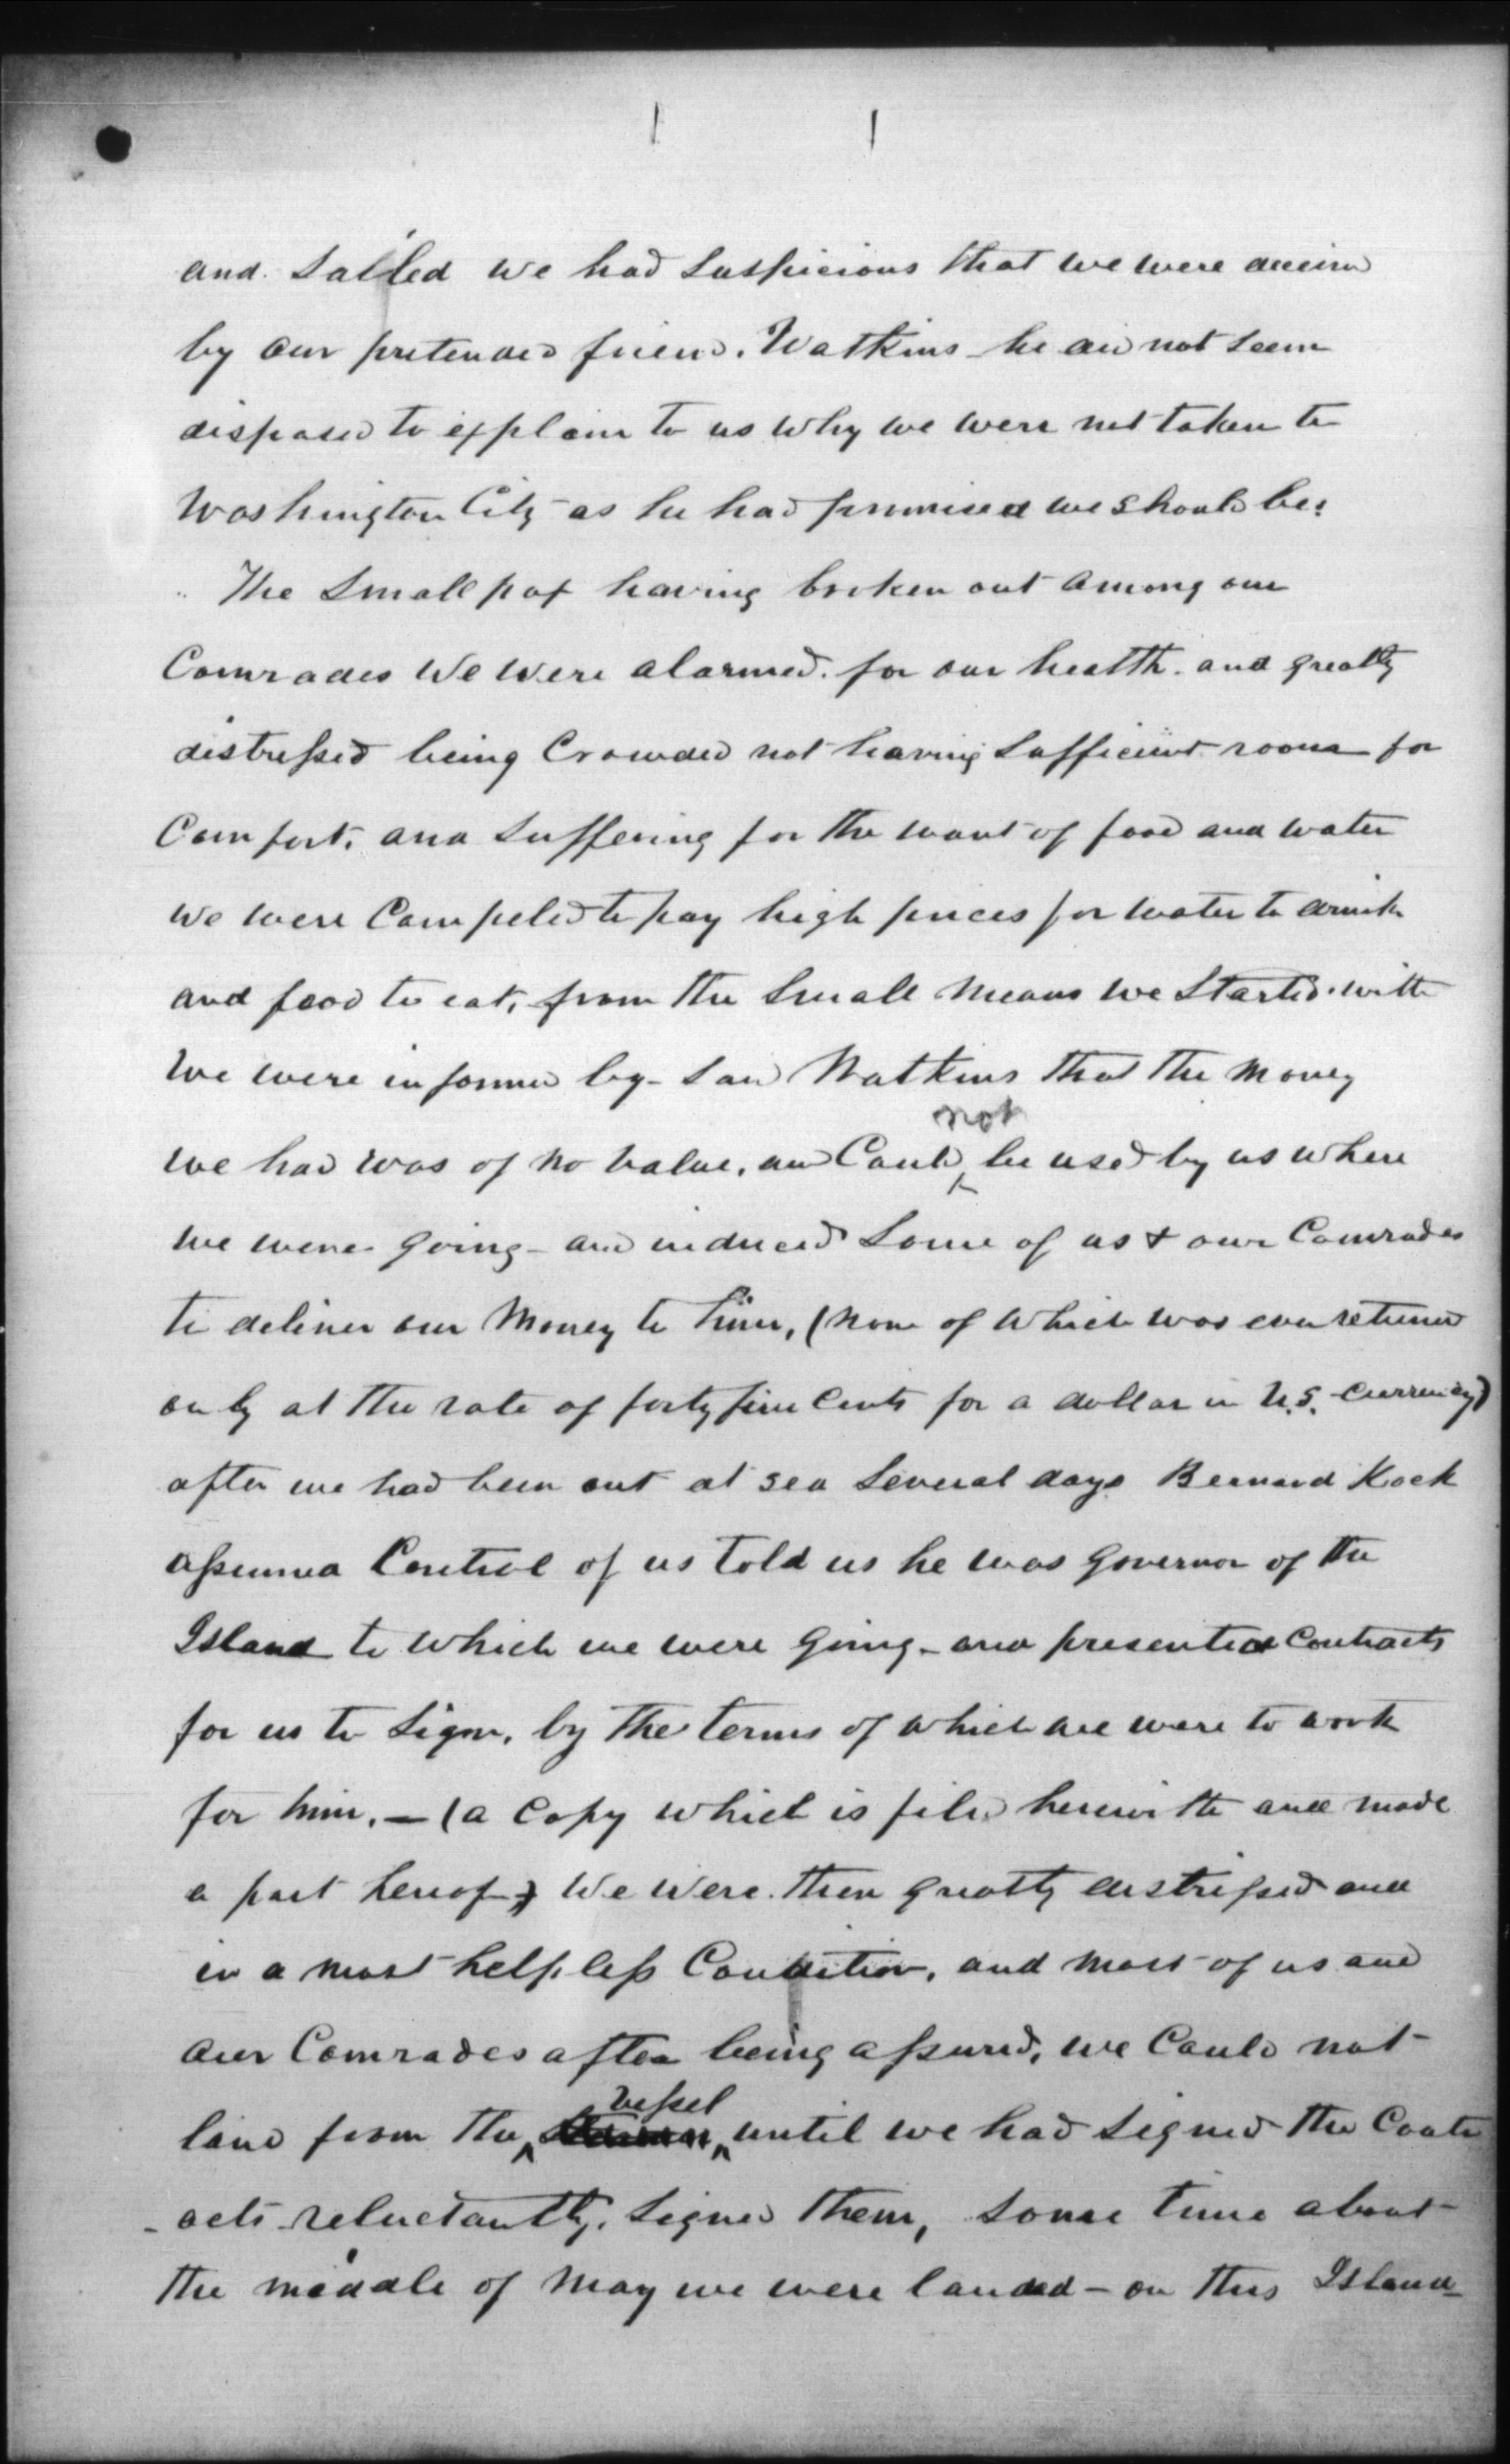 and sailed we had suspicions that we were deceived
by our pretended friend. Watkins - he did not seem
disposed to explain to us why we were not taken to
Washington City - as he had promised we should be.
The Small pox having broken out among our
Comrades We were alarmed. for our health. and greatly
distressed being Crowded not having sufficient room for
Comfort, and suffering for the want of food and water
we were Compeled to pay high prices for water to drink
and food to eat, from the small means we started with
We were informed by - said Watkins that the money
not
we had was of no value, and Could be used by us where
we were going - and induced some of us & our Comrades
to deliver our money to him, (none of which was ever returned
only at the rate of forty five Cents for a dollar in U.S. Currency)
after we had been out at sea several days Bernard Kock
assumed Control of us told us he was Governor of the
Island to which we were going - and presented Contracts
for us to sign, by the terms of which we were to work
for him. — (a Copy which is filed herewith and made
a part hereof) We were then greatly distressed and
in a most helpless Condition, and most of us and
our Comrades after being assured, we Could not
vessel
land from the until we had signed the Contr
- acts reluctantly. signed them, some time about
the middle of May we were landed - on this Island